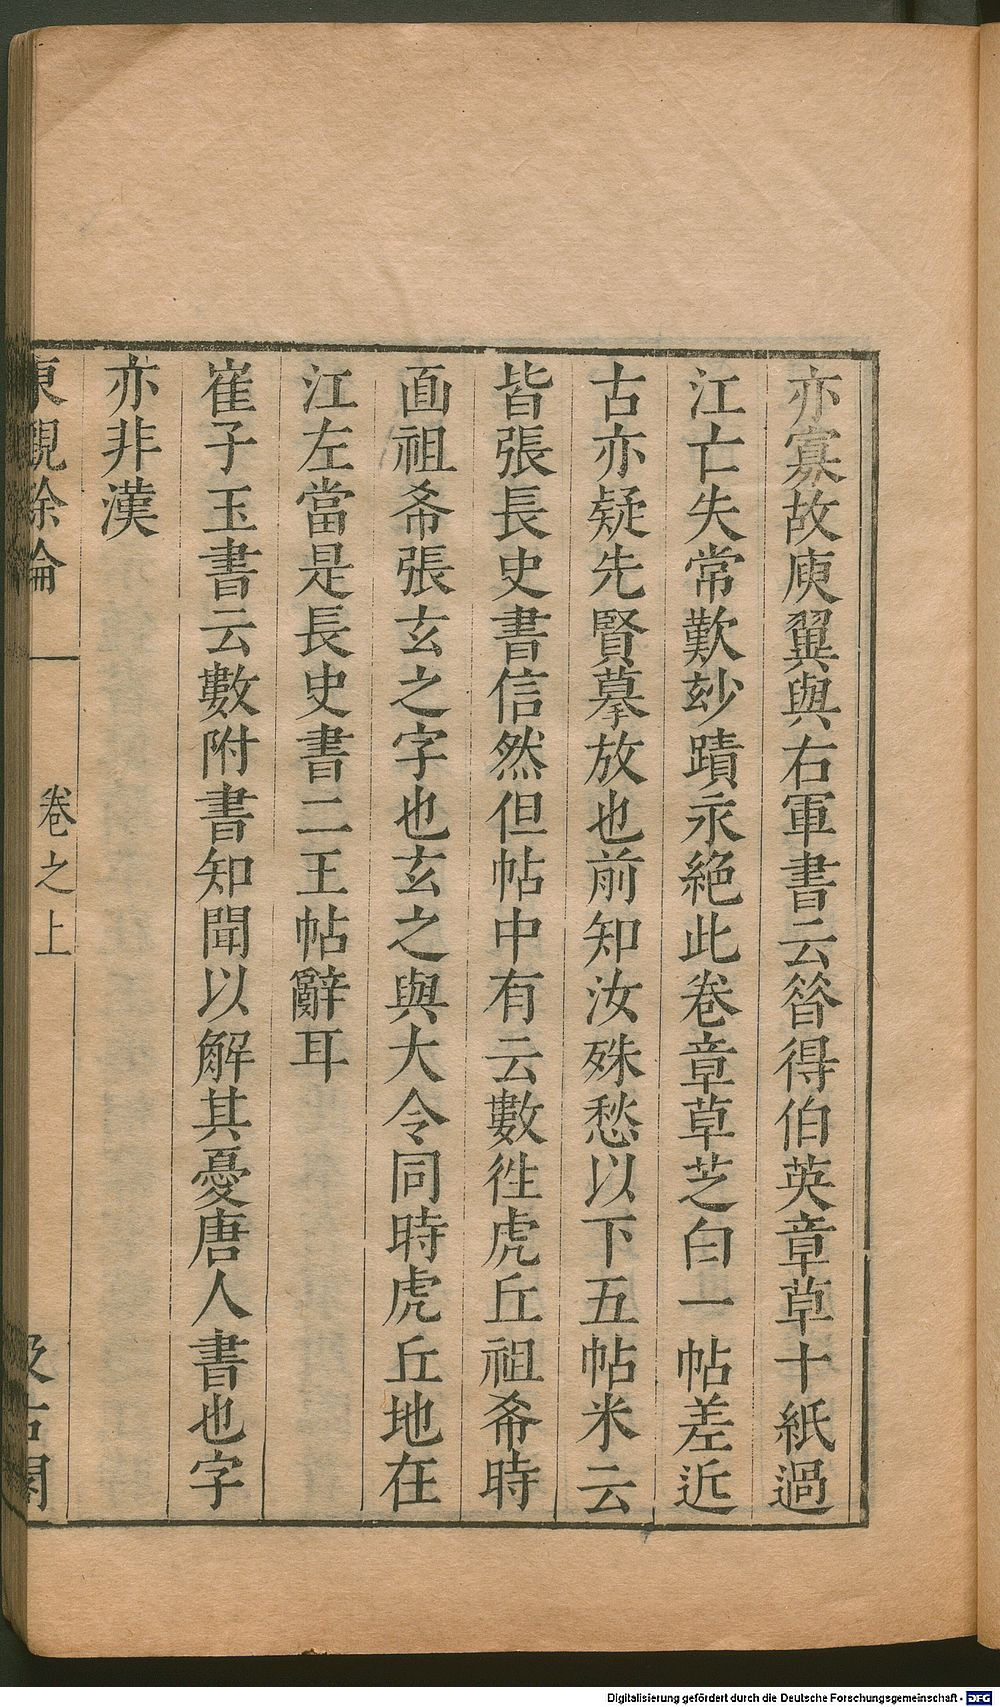 亦寡故庾翼與右軍書云昝得伯英章草十紙過
江亡失常歎玅蹟永絕此卷章草芝白一帖差近
古亦疑先賢摹放也前知汝殊愁以下五帖米云
皆張長史書信然但帖中有云數徃虎丘祖希時
面祖希張玄之字也玄之與大令同時虎丘地在
江左當是長史書二王帖辭耳
崔子玉書云數附書知聞以解其憂唐人書也字
亦非漢
東觀餘論
卷之上
汲古閣
Digitalisierung gefördert durch die Deutsche Forschungsgemeinschaft - DFG